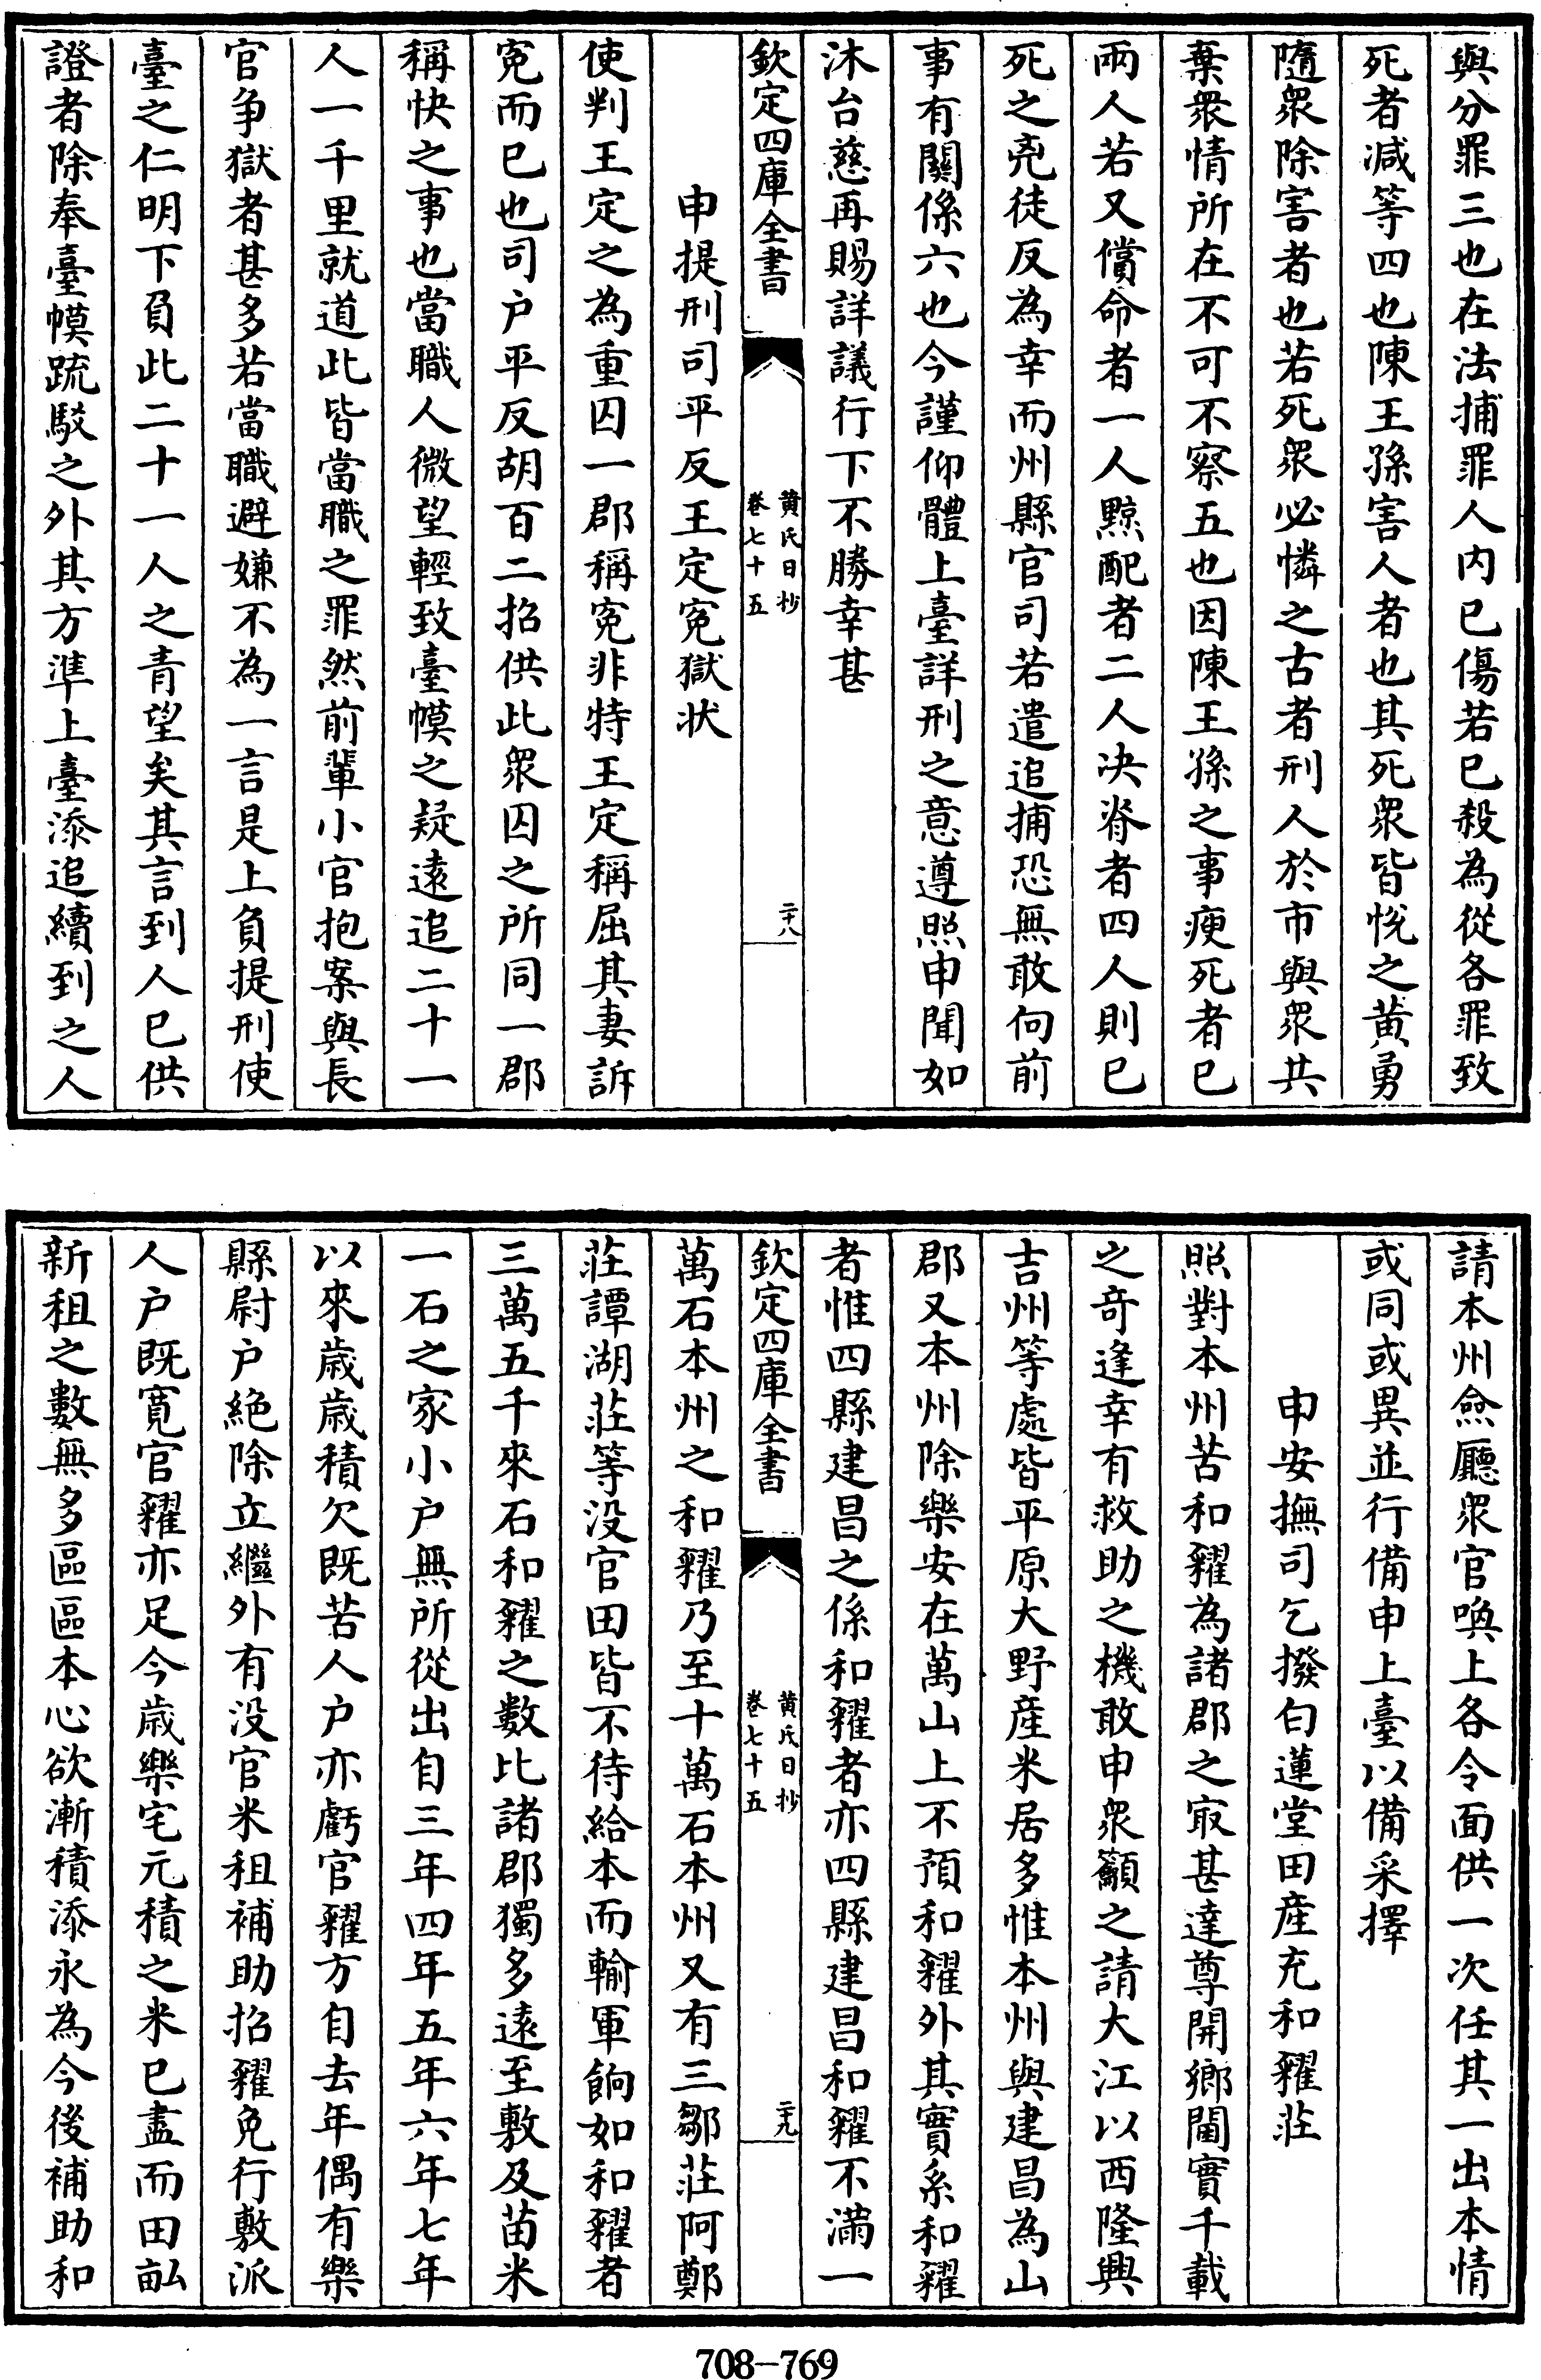 與分罪三也在法捕罪人内已傷若已殺為從各罪致
死者減等四也陳王孫害人者也其死衆皆恱之黄勇
隨衆除害者也若死衆必憐之古者刑人於市與衆共
棄衆情所在不可不察五也因陳王孫之事瘐死者已
兩人若又償命者一人黥配者二人决脊者四人則已
死之兇徒反為幸而州縣官司若遣追捕恐無敢向前
事有關係六也今謹仰體上臺詳刑之意遵照申聞如
沐台慈再賜詳議行下不勝幸甚
欽定四庫全書
黄氏日抄
卷七十五
二十八
申提刑司平反王定寃獄状
使判王定之為重囚一郡稱寃非特王定稱屈其妻訴
寃而已也司户平反胡百二招供此衆囚之所同一郡
稱快之事也當職人微望輕致臺幙之疑遠追二十一
人一千里就道此皆當職之罪然前輩小官抱案與長
官争獄者甚多若當職避嫌不為一言是上負提刑使
臺之仁明下負此二十一人之青望矣其言到人已供
證者除奉臺幙疏駮之外其方準上臺添追續到之人
請本州僉廳衆官喚上各令面供一次任其一出本情
或同或異並行備申上臺以備采擇
申安撫司乞撥白蓮堂田産充和糴莊
照對本州苦和糴為諸郡之㝡甚達尊開鄉閫實千載
之奇逢幸有救助之機敢申衆籲之請大江以西隆興
吉州等處皆平原大野産米居多惟本州與建昌為山
郡又本州除樂安在萬山上不預和糴外其實系和糴
者惟四縣建昌之係和糴者亦四縣建昌和糴不滿一
欽定四庫全書
黄氏日抄
卷七十五
二十九
萬石本州之和糴乃至十萬石本州又有三鄒莊阿鄭
莊譚湖莊等没官田皆不待給本而輸軍餉如和糴者
三萬五千來石和糴之數比諸郡獨多遠至敷及苗米
一石之家小户無所從出自三年四年五年六年七年
以來歳歳積欠既苦人户亦虧官糴方自去年偶有樂
縣尉户絶除立繼外有没官米租補助招糴免行敷派
人户既寛官糴亦足今歳樂宅元積之米已盡而田畝
新租之數無多區區本心欲漸積添永為今後補助和
708-769